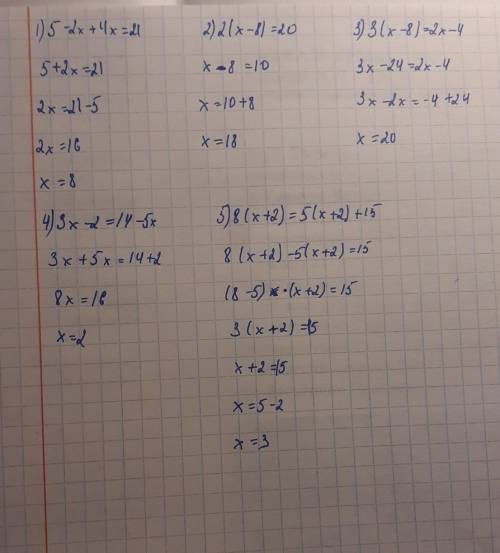 1) 5-2x+4x=21
5+2x=21
2x=21-5
2x=16
x=8
2) 2(x-8)=20
x-8=10
x=10+8
x=18
3) 3(x-8)=2x-4
3x-24=2x-4
3x-2x=-4+24
x=20
4) 3x-2=14-5x
3x+5x=14+2
8x=16
x=2
5) 8(x+2)=5(x+2)+15
8(x+2)-5(x+2)=15
(8-5)·(x+2)=15
3(x+2)=15
x+2=15
x=5-2
x=3